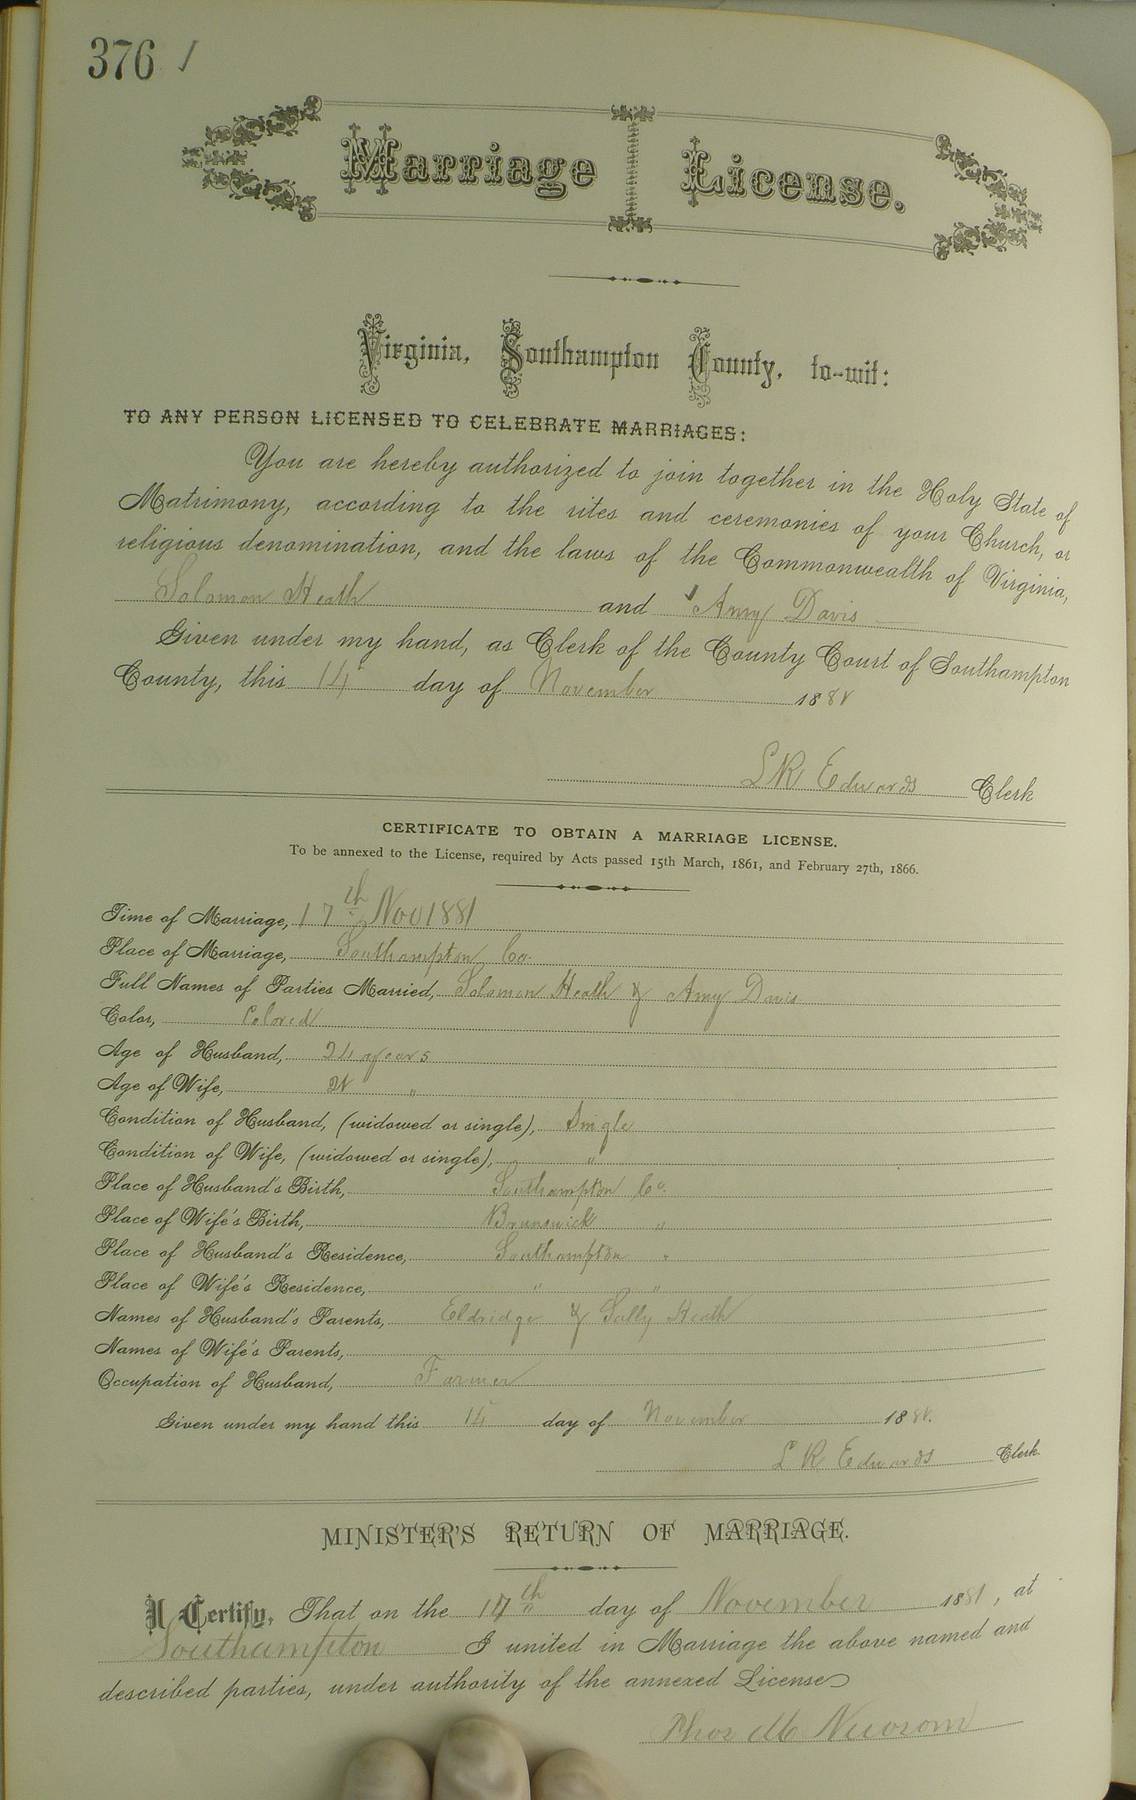 376 /
Marriage License.
Virginia, Southampton County, to-wit:
TO ANY PERSON LICENSED TO CELEBRATE MARRIAGES:
You are hereby authorized to join together in the Holy State of
Matrimony, according to the rites and ceremonies of your Church, or
religious denomination, and the laws of the Commonwealth of Virginia,
Solomon Heath and Amy Davis
Given under my hand, as Clerk of the County Court of Southampton
County, this 14 day of November 1881
L R Edwards Clerk
CERTIFICATE TO OBTAIN A MARRIAGE LICENSE.
To be annexed to the License, required by Acts passed 15th March, 1861, and February 27th, 1866.
Time of Marriage, 17th Nov 1881
Place of Marriage, Southampton Co.
Full Names of Parties Married, Solomon Heath & Amy Davis
Color, Colored
Age of Husband, 24 years
Age of Wife, 21 "
Condition of Husband, (widowed or single), Single
Condition of Wife, (widowed or single), "
Place of Husband's Birth, Southampton Co.
Place of Wife's Birth, Brunswick "
Place of Husband's Residence, Southampton "
Place of Wife's Residence, " "
Names of Husband's Parents, Eldridge & Sally Heath
Names of Wife's Parents,
Occupation of Husband, Farmer
Given under my hand this 14 day of November 1881.
L R Edwards Clerk
MINISTER'S RETURN OF MARRIAGE.
I Certify, That on the 17th day of November 1881, at
Southampton I united in Marriage the above named and
described parties, under authority of the annexed License
Thos M Newsom